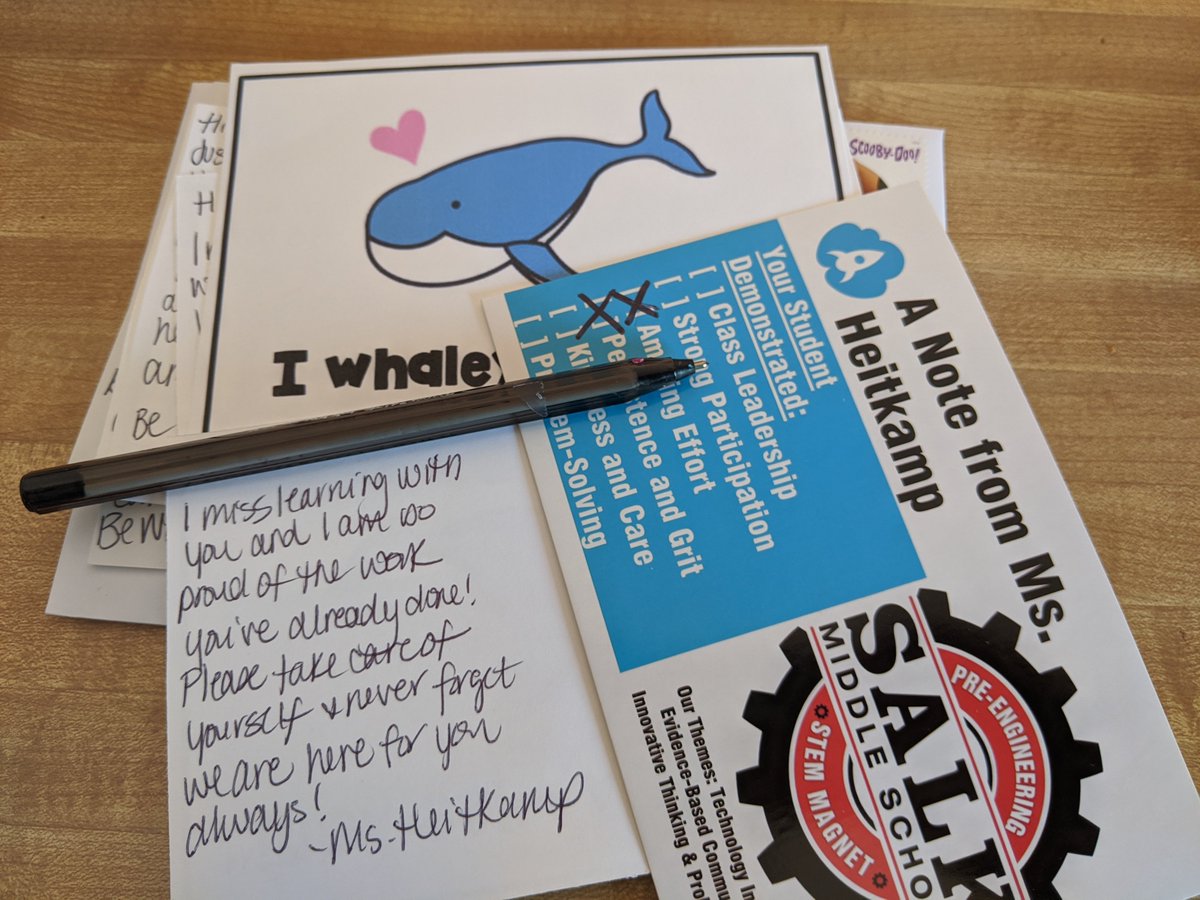 SCOOBY-DOO!
I whale
I miss learning with
you and I am so
proud of the work
you've already done!
Please take care of
yourself & never forget
we are here for you
always!
-Ms. Heitkamp
A Note from Ms.
Heitkamp
Your Student
Demonstrated:
[ ] Class Leadership
[ ] Strong Participation
XX Am ing Effort
Pe tence and Grit
[ ] Ki ess and Care
[ ] P em-Solving
SALK
MIDDLE SCHO
PRE-ENGINEERING
STEM MAGNET
Our Themes: Technology In
Evidence-Based Commu
Innovative Thinking & Pro
Be
Be